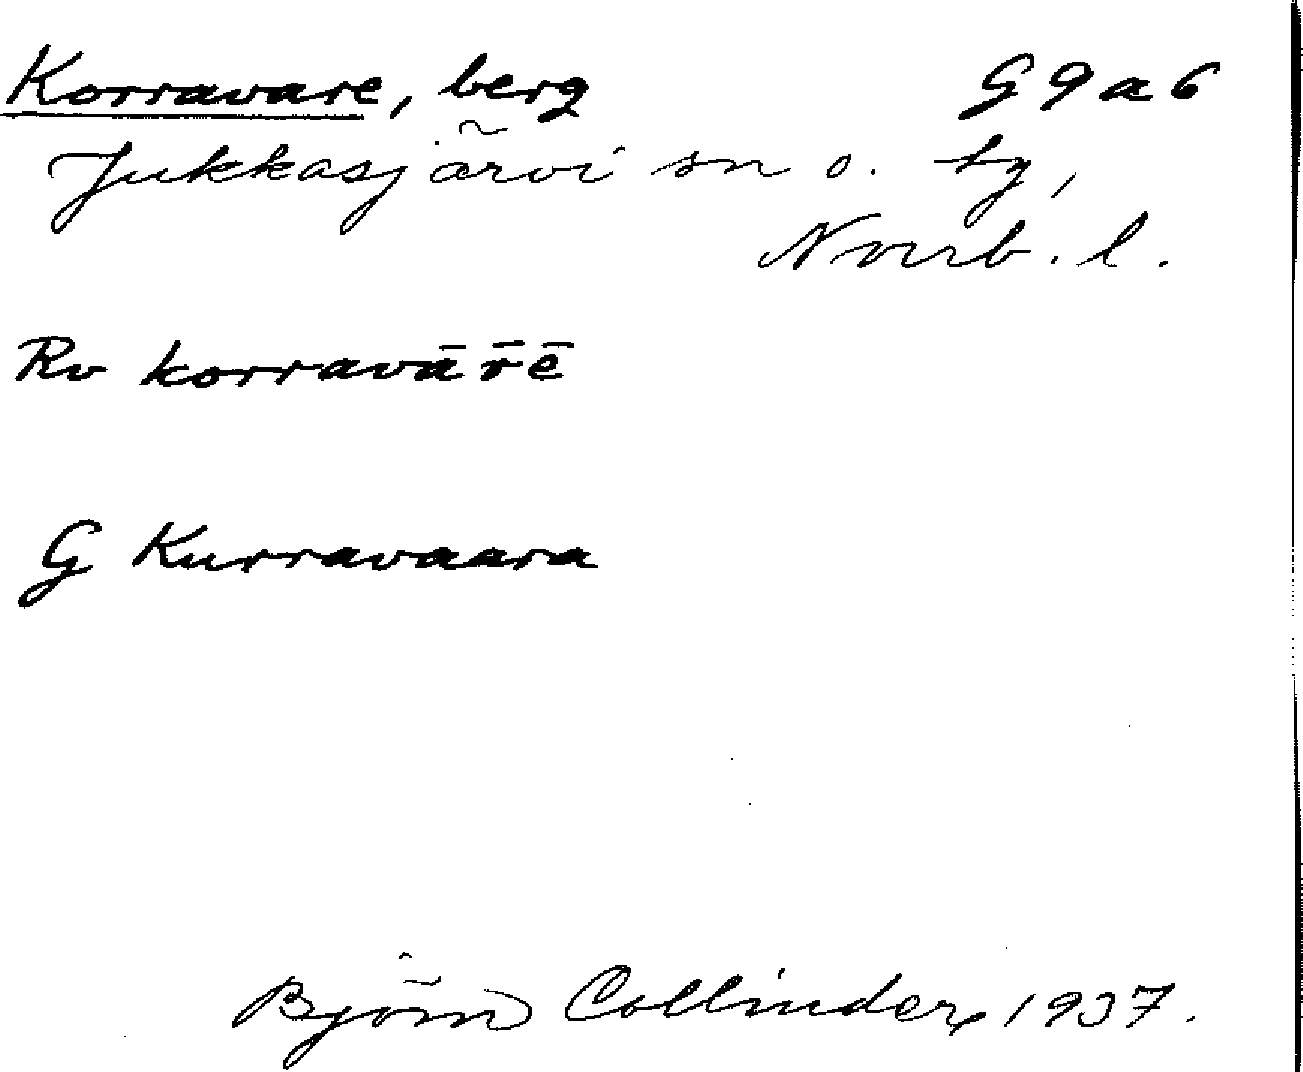 Korravare, berg G9a6
Jukkasjärvi sn o. tg,
Norrb. l.
Rv korravārē
G Kurravaara
Björn Collinder 1937.